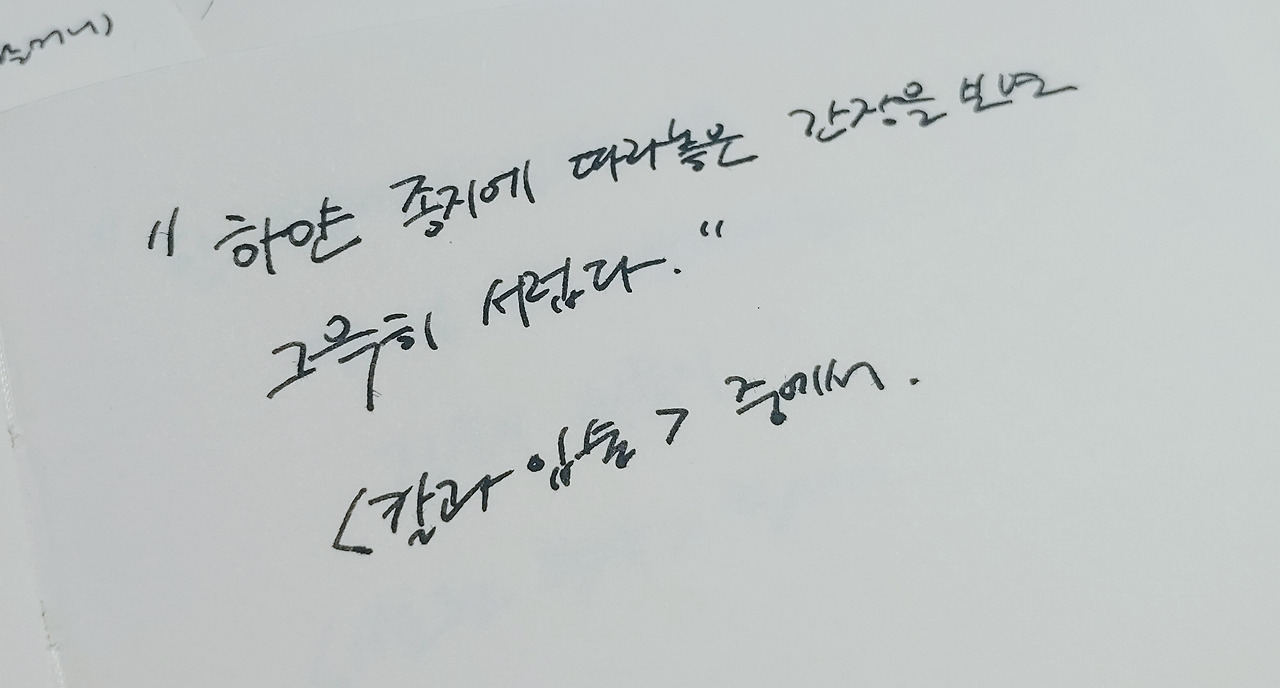 "하얀 종지에 따라놓은 간장을 보면
그윽히 서럽다."
<칼과 입술> 중에서.